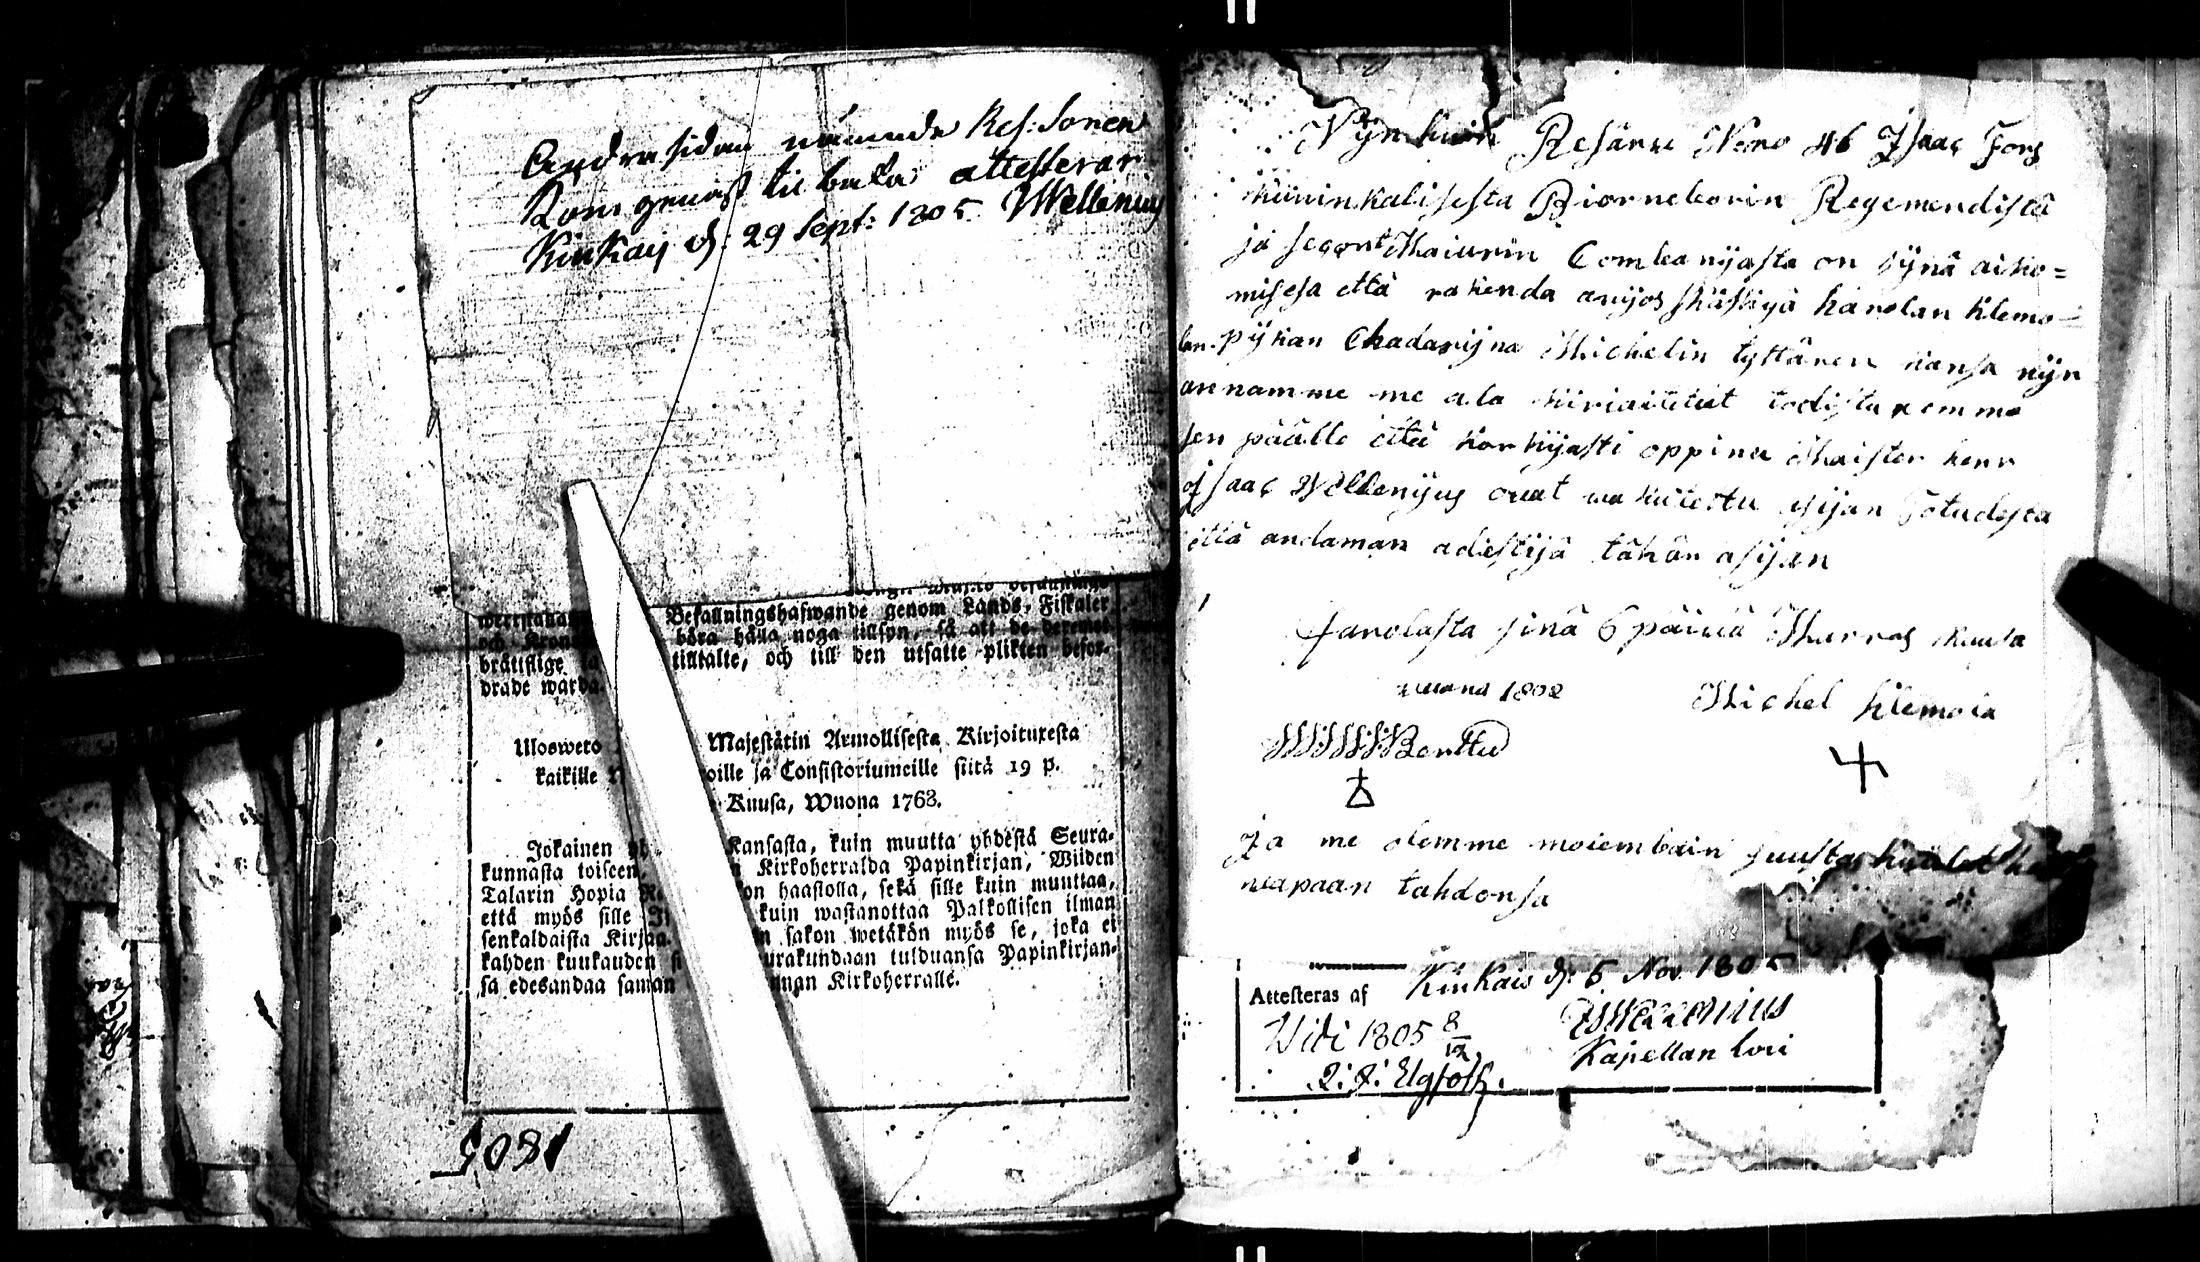 Andra sidan nämnde Res: Sonen
Kom genast til baka attesterar
Kinkay d: 29 Sept: 1805 IWellenius
Befallningshafwande genom Lands-Fiskaler
och Krono böra hålla noga tillsyn, så att de deremot
bråttslige tilltalte, och till den utsatte plikten befor-
drade warda.
Uloswero Majestätin Armollisesta Kirjoituxesta
kaikille oille ja Consistoriumeille siitä 19 p.
Kuusa, Wuona 1763.
Jokainen Kansasta, kuin muutta yhdestä Seura-
kunnasta toiseen, Kirkoherralda Papinkirjan, Wiiden
Talarin Hopia on haastolla, sekä sille kuin muuttaa,
että myös sille kuin wastanottaa Palkollisen ilman
senkaldaista Kirjaa. sakon wetäkön myös se, joka ei
kahden kuukauden urakundaan tulduansa Papinkirjan-
sa edesandaa saman nnan Kirkoherralle.
1805
Nyn kuin Resärwi Nomo 46 Isaac Fors
kuninkalisesta Biorneborin Regemendistä
ja segont Maiurin Combanijasta on synä aiko=
misesa että rakenda awijos käskyä karolan klemo-
lan pijkan Chadarijna Michelin tyttären kansa nijn
annamme me ala kiriaitetut todistuxemme
sen päälle että korkijasti oppinu Maister herr
Isaac Wellenijus ovat wakutettu asijan totudesta
että andaman adestijä tähän asijan
karolasta sinä 6 päivä Marras kuusa
wuona 1802 Michel klemola
Benttu
Ja me olemme moiembain suusta kuulet
wapaan tahdonsa
Attesteras af Kinkais d: 5 Nov. 1805
Widi 1805 8/12 IsWellenius
Elgfoth. Kapellan loci